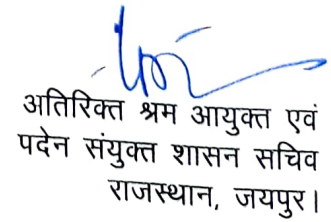 अतिरिक्त श्रम आयुक्त एवं
पदेन संयुक्त शासन सचिव
राजस्थान, जयपुर।